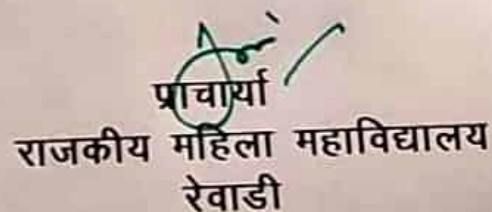 प्राचार्या
राजकीय महिला महाविद्यालय
रेवाडी